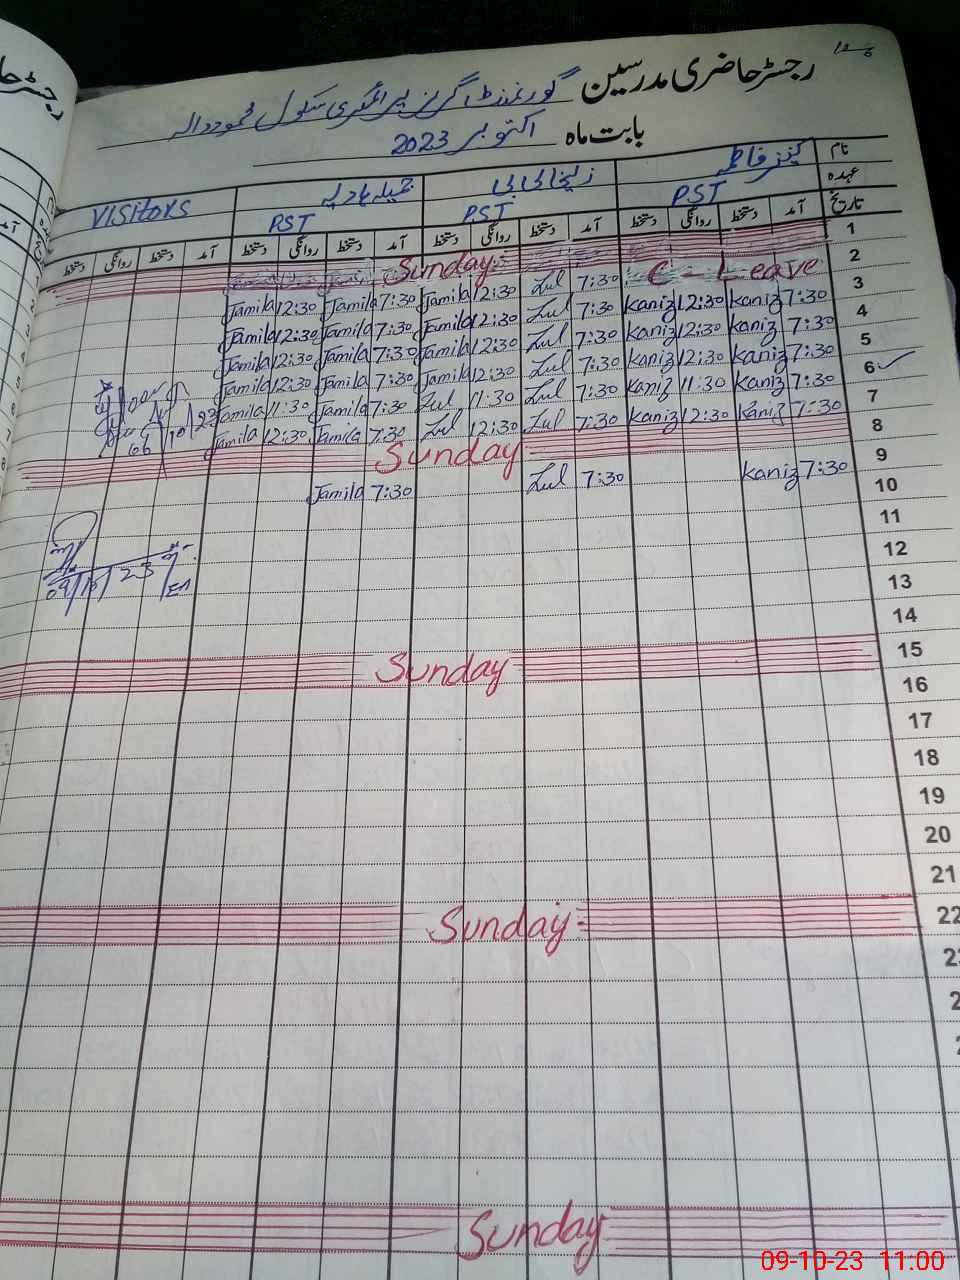 رجسٹر حاضری مدرسین
گورنمنٹ گرلز پرائمری سکول محمود والہ
بابت ماہ اکتوبر 2023
نام کنیز فاطمہ زلیخا بی بی جمیلہ VISITORS
عہدہ PST PST PST
تاریخ آمد دستخط روانگی دستخط آمد دستخط روانگی دستخط آمد دستخط روانگی دستخط آمد دستخط روانگی دستخط
1 Sunday
2 C-Leave 7:30 Zul 12:30 Jamila 7:30 Jamila 12:30 Jamila
3 7:30 Kaniz 12:30 Kaniz 7:30 Zul 12:30 Jamila 7:30 Jamila 12:30 Jamila
4 7:30 Kaniz 12:30 Kaniz 7:30 Zul 12:30 Jamila 7:30 Jamila 12:30 Jamila
5 7:30 Kaniz 12:30 Kaniz 7:30 Zul 12:30 Jamila 7:30 Jamila 12:30 Jamila
6 7:30 Kaniz 11:30 Kaniz 7:30 Zul 11:30 Zul 7:30 Jamila 11:30 Jamila
7 7:30 Kaniz 12:30 Kaniz 7:30 Zul 12:30 Zul 7:30 Jamila 12:30 Jamila
06/10/23
8 Sunday
9 7:30 Kaniz 7:30 Zul 7:30 Jamila
10
11
09/10/23
12
13
14
15 Sunday
16
17
18
19
20
21
22 Sunday
Sunday
09-10-23 11:00